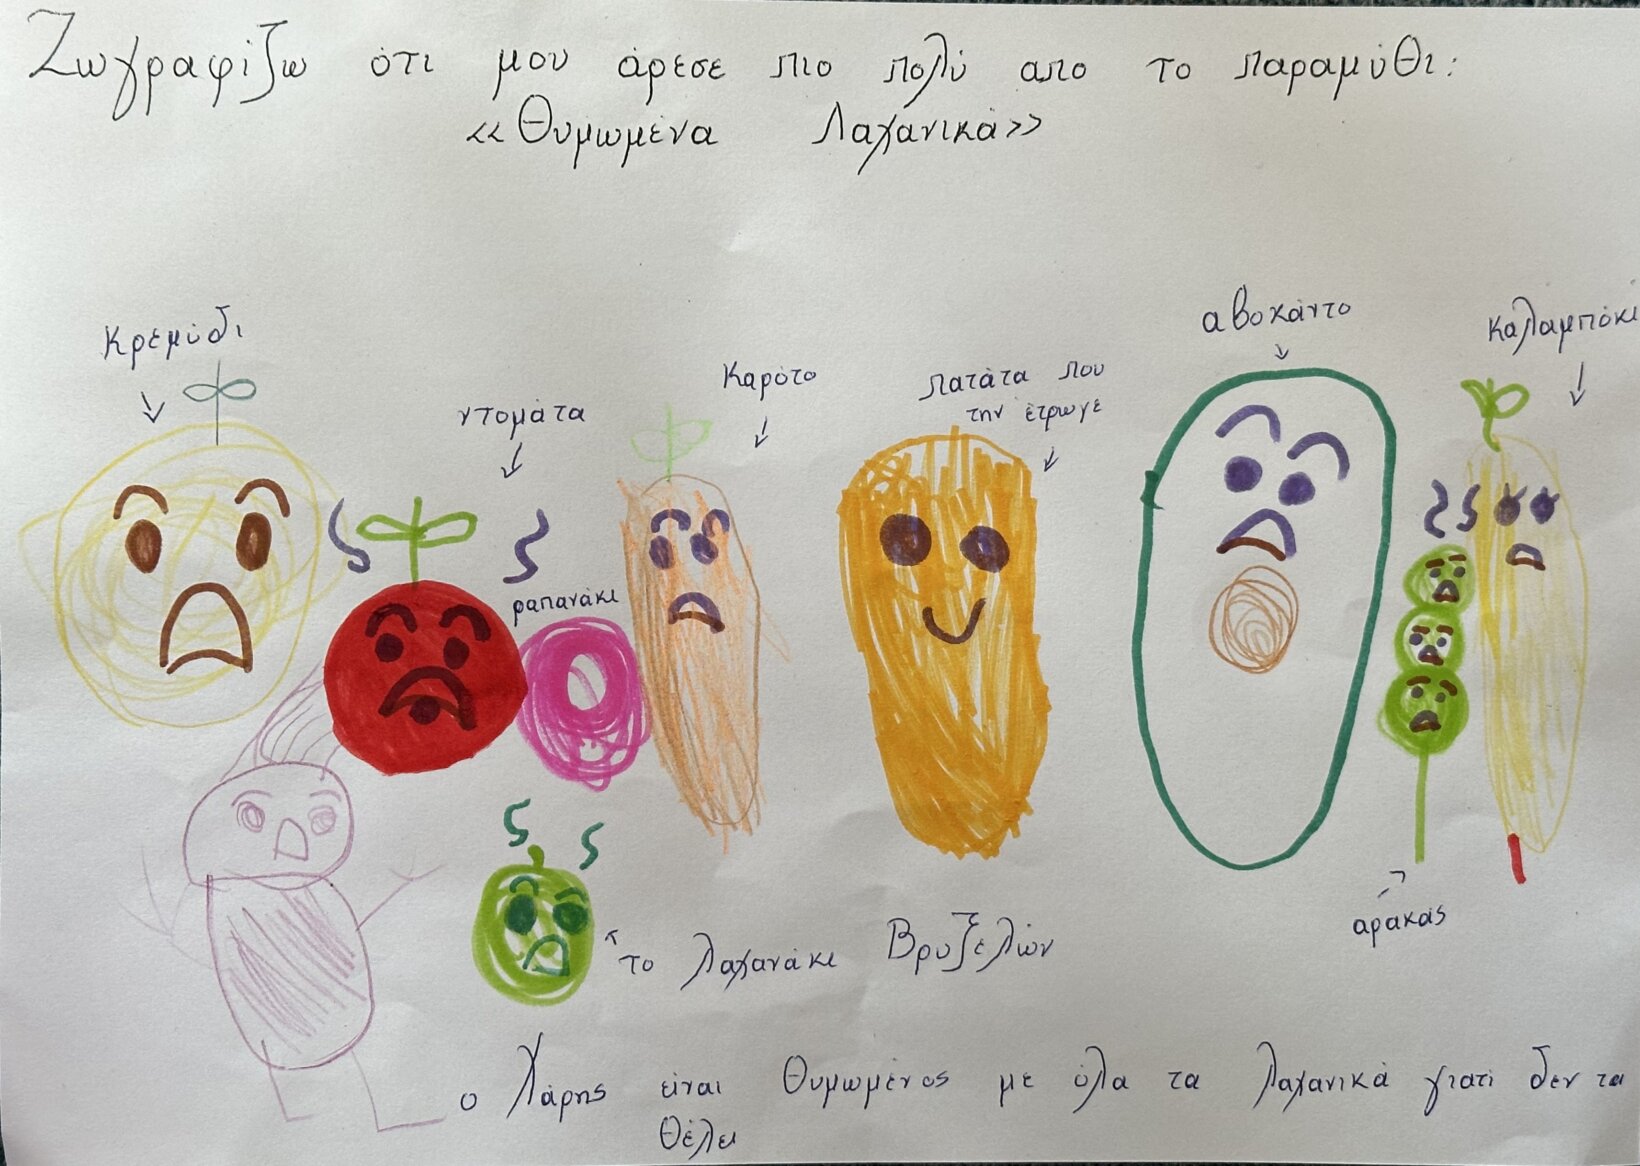 Ζωγραφίζω ότι μου άρεσε πιο πολύ απο το παραμύθι:
«Θυμωμένα Λαχανικά»
Κρεμύδι
ντομάτα
ραπανάκι
Καρότο
πατάτα που
την έτρωγε
αβοκάντο
καλαμπόκι
αρακάς
το λαχανάκι Βρυξελών
ο Χάρης είναι θυμωμένος με όλα τα λαχανικά γιατί δεν τα
θέλει